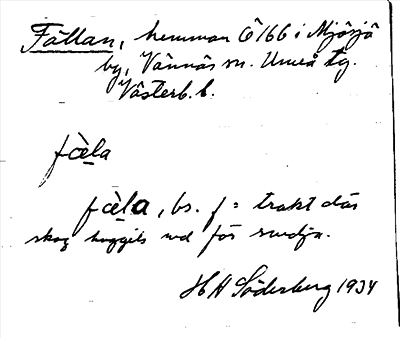 Fällan, hemman Ö166 i Mjösjö
by, Vännäs sn. Umeå tg.
Västerb. l.
fæ̀la
fæ̀la, bs. f = trakt där
skog huggits ned för svedja.
H H Söderberg 1934